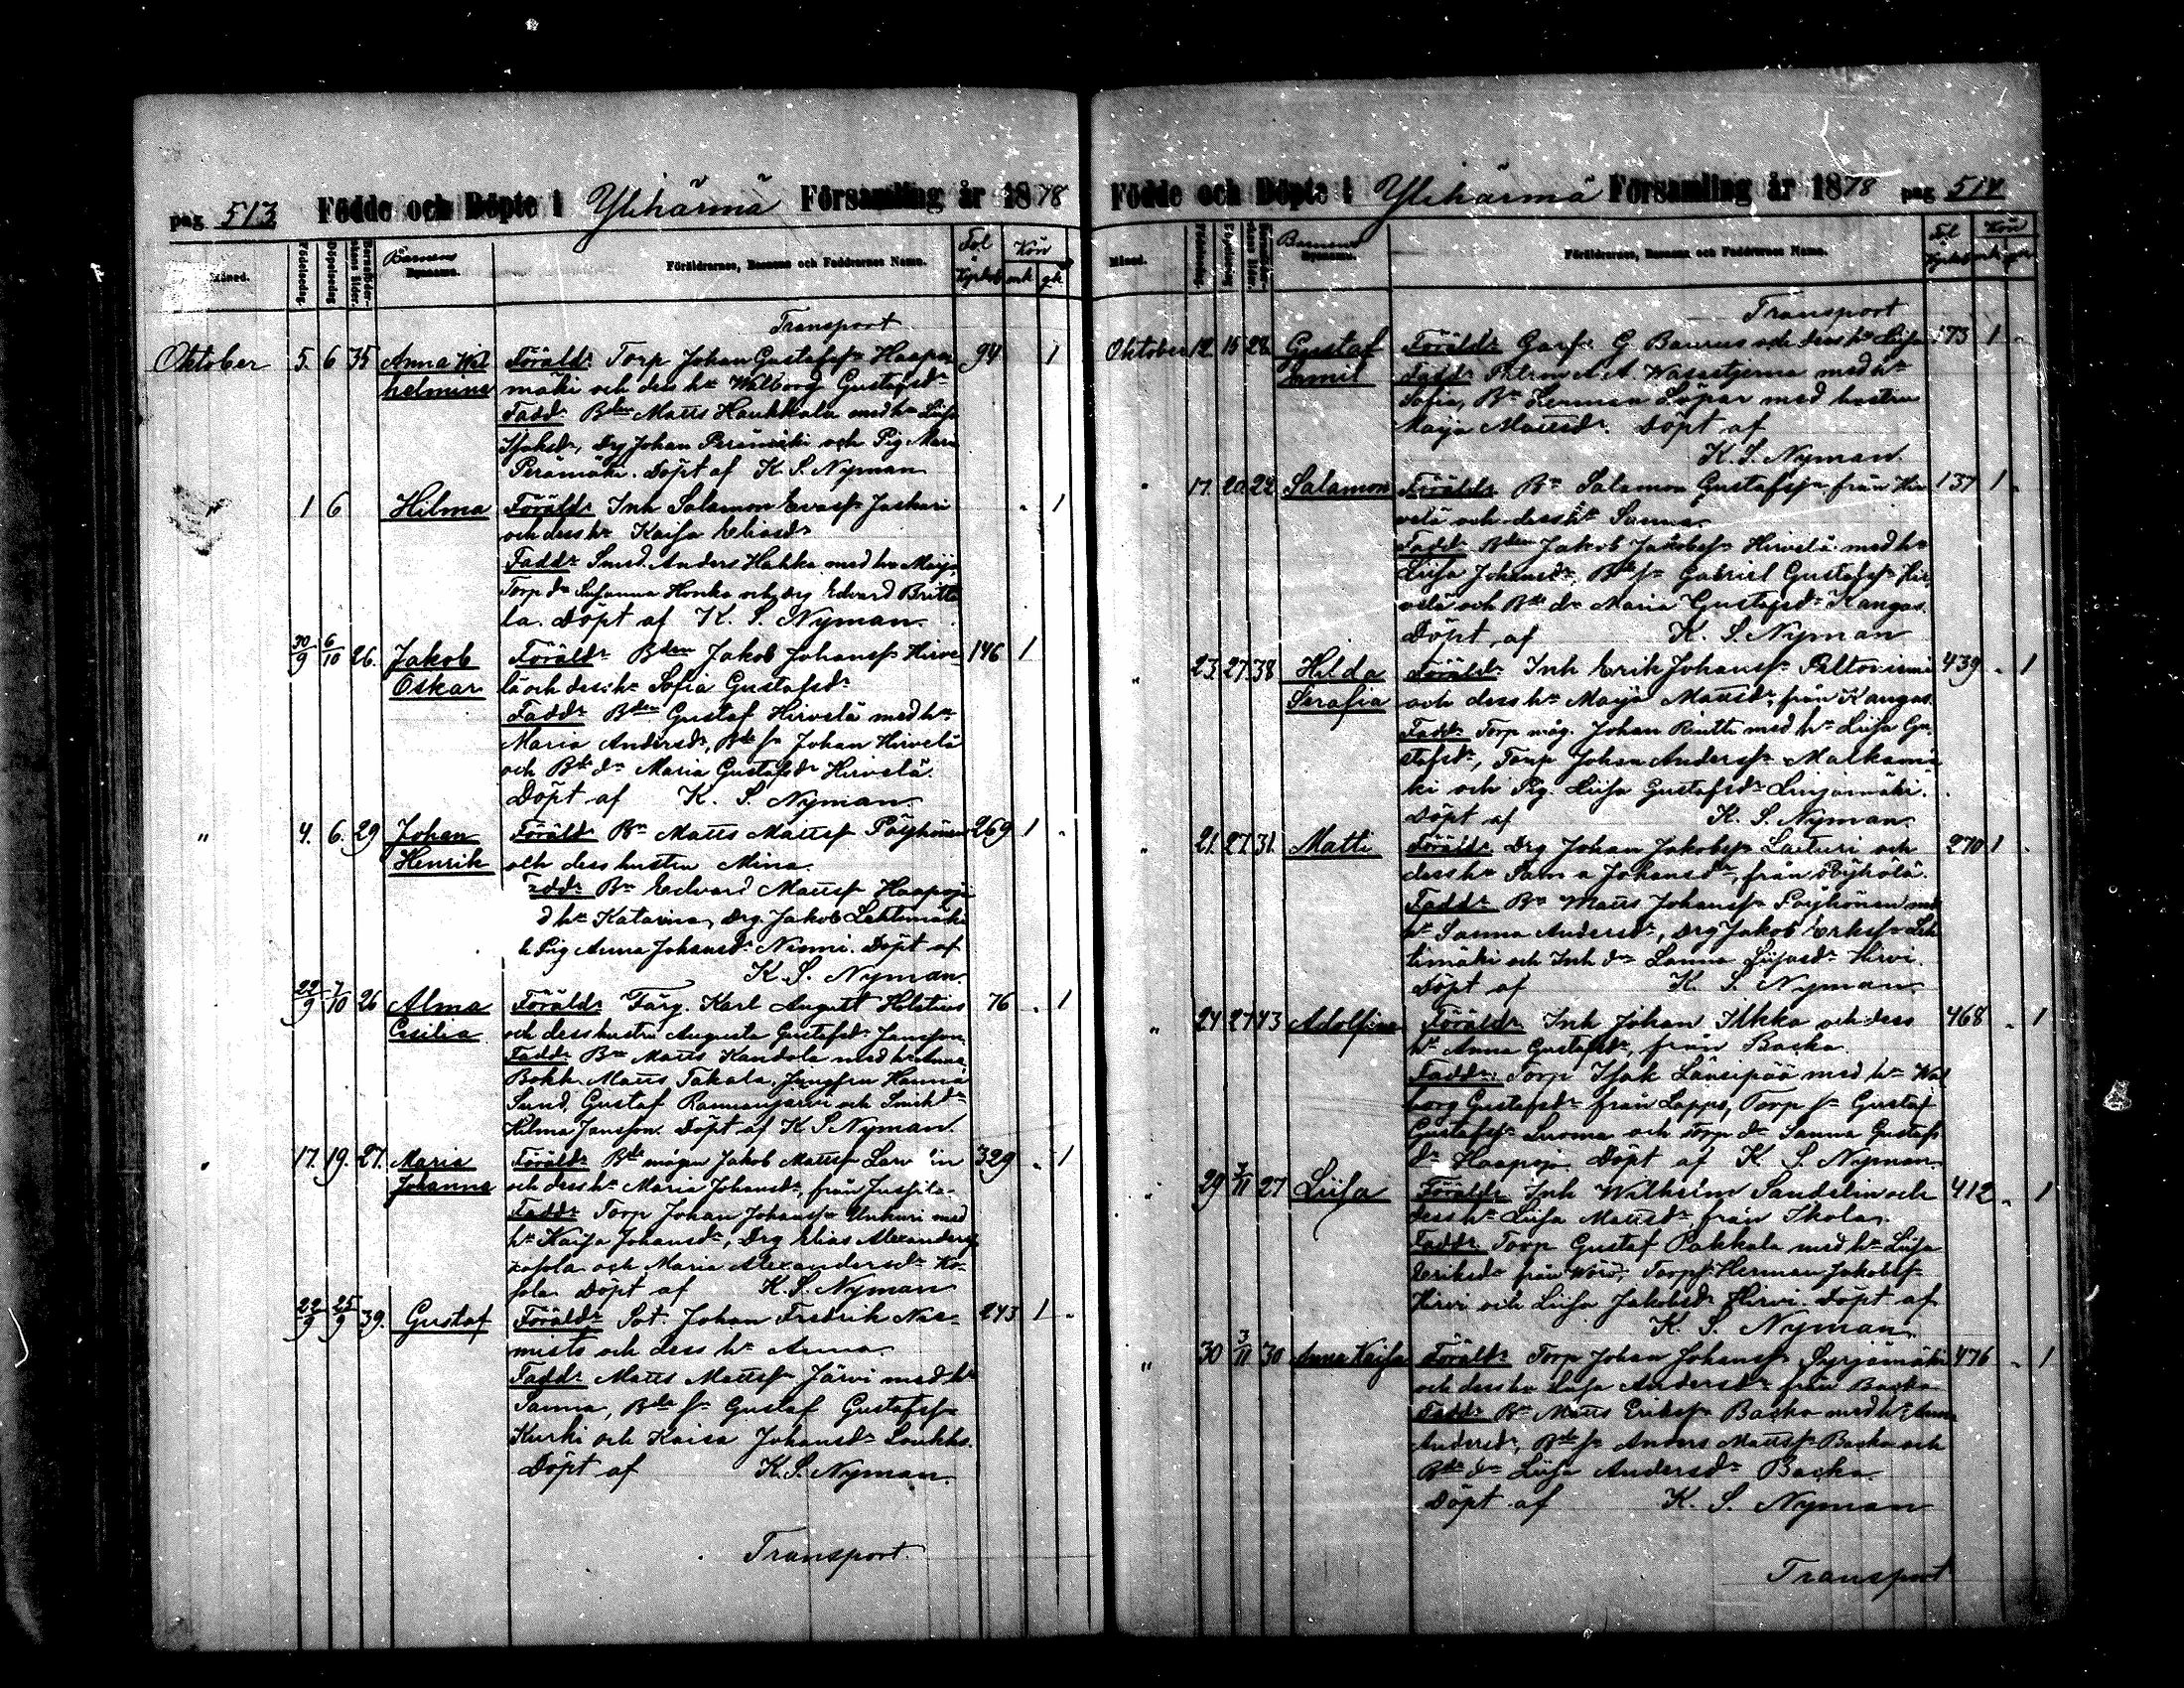 pag 513 Födde och Döpte i Ylihärmä Församling år 1878
Måned. Födelsedag. Döpelsedag Barnens Föräldrarnes, Barnens och Faddrarnes Namn. Fol Kyrkob Kön
mk qk
Transport
Oktober 5. 6 35 Anna Wil Föräldr Torp Johan Gustafss Haapa 94 1
helmina mäki och dess hu Walborg Gustafsdr
Fadd. Bden Matts Haukkala med hu Liisa
Isaksdr, drg Johan Perämäki och Pig Maria
Perämäki. Döpt af K. S. Nyman
" 1 6 Hilma Föräldr Inh Salamon Jaskari " 1
och dess hu Kaisa Eliasdr
Faddr Smed. Anders Hahka med hu Maija,
Torp dr Susanna Honka och drg Edvard Britta
la. Döpt af K. S. Nyman
30/9 6/10 26. Jakob Föräldr Bden Jakob Johanss Hirve 146 1
Oskar lä och dess hu Sofia Gustafsdr
Faddr Bden Gustaf Hirvelä med hu
Maria Andersdr, Bde s Johan Hirvelä
och Bde dr Maria Gustafsdr Hirvelä.
Döpt af K. S. Nyman
" 4. 6. 29 Johan Föräldr Bn Matts Mattss Pöyhönen 269 1 "
Henrik och dess hustru Mina.
Fadd. Bn Edvard Mattss Haapoja
d hu Katarina, Drg. Jakob Lehtimäki
h Pig Anna Johansdr Niemi. Döpt af
K. S. Nyman.
22/9 7/10 26 Alma Föräldr Färg. Karl August Holstius 76 " 1
Cecilia och dess hustru Augusta Gustafsdr Jansson
Faddr Bn Matts Kandola med hu Anna
Bokh. Matts Takala, Jungfru Hanna
Sund, Gustaf och Smeds dr
Hilma Jansson. Döpt af K. S Nyman.
" 17. 19. 27. Maria Föräldr Bde mågen Jakob Mattss 329 " 1
Johanna och dess hu Maria Johansdr, från Jussila.
Faddr Torp Johan Johanss Unkuri med
hu Kaisa Johansdr, Drg Elias Alexanders
Kosola och Maria Alexandersdr Ko-
sola Döpt af K. S. Nyman
22/9 25/9 39. Gustaf Föräldr Sot. Johan Fredrik Nie- 243 1 "
mistö och dess hu Anna.
Faddr Matts Mattss Järvi med hu
Sanna, Bde s Gustaf Gustafss
Kurki och Kaisa Johansdr Loukko.
Döpt af K. S. Nyman.
Transport.
Födde och Döpte i Ylihärmä Församling år 1878 pag 514
Måned. Födelsedag Döpelsedag Barnens Föräldrarnes, Barnens och Faddrarnes Namn. Fol Kyrkob Kön
mk qk
Transport
Oktober 12. 15 28. Gustaf Föräldr Garf. G Baurus och dess hu Liisa 173 1 "
Emil Fadd. Patron A. A. Wasastjerna med hu
Sofia, Bn Herman Löpar med hustru
Maija Mattsdr. Döpt af
K. S. Nyman
" 17. 20. 22 Salamon Föräldr Bn Salamon Gustafss från Hir 137 1 "
velä och dess hu Sanna
Faddr Bden Jakob Jakobss Hirvelä med hu
Liisa Johansdr, Bde s Gabriel Gustafss Hir
velä och Bde dr Maria Gustafsdr Kangas.
Döpt af K. S. Nyman
" 23. 27. 38 Hilda Föräldr Inh Erik Johanss Peltoniemi 439 " 1
Serafia och dess hu Maija Mattsdr, från Kangas.
Faddr Torp måg. Johan Rintti med hu Liisa Gu
stafsdr, Torp Johan Anderss Malkamä
ki och Pig Liisa Gustafsdr Linjamäki.
Döpt af K. S. Nyman.
" 21. 27. 31. Matti Föräldr Drg Johan Jakobss Laituri och 270 1 "
dess hu Sanna Johansdr, från Pöyhölä.
Faddr Bn Matts Johanss Pöyhönen med
hu Sanna Andersdr, Drg Jakob Erikss Leh
timäki och Inh dr Sanna Hirvi.
Döpt af K. S. Nyman.
" 24 27 43 Adolfina Föräldr Inh Johan Ilkka och dess 468 " 1
hu Anna Gustafsdr, från Backa.
Faddr. Torp Isak Länsipää med hu Wal
borg Gustafsdr från Lappo, Torp s Gustaf
Gustafss Luoma och Torp dr Sanna Gustafs
dr Haapoja. Döpt af K. S. Nyman
" 29 3/11 27 Liisa Föräldr Inh Wilhelm Sandelin och 412 " 1
dess hu Liisa Mattsdr från Ikola.
Faddr Torp Gustaf Pakkala med hu Liisa
Eriksdr från Wörå, Torps Herman Jakobss
Hirvi och Liisa Jakobsdr Hirvi Döpt af
K. S. Nyman.
" 30 3/11 30 Anna Kaisa Föräldr Torp Johan Johanss Syrjämäki 476 " 1
och dess hu Liisa Andersdr från Backa
Faddr Bn Matts Erikss Backa med hu Anna
Andersdr, Bde s Anders Mattss Backa och
Bde dr Liisa Andersdr Backa
Döpt af K. S. Nyman
Transport